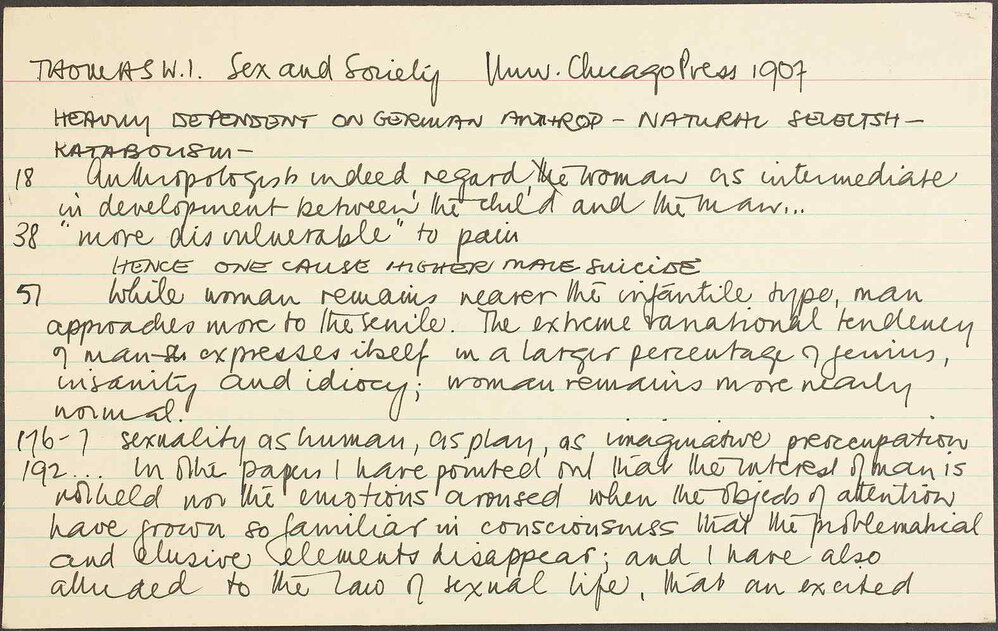 THOMAS W.I. Sex and Society Univ. Chicago Press 1907
HEAVILY DEPENDENT ON GERMAN ANTHROP - NATURAL SELECTISH -
KATABOLISM -
18 Anthropologists indeed, regard the woman as intermediate
in development between the child and the man...
38 "more disvulnerable" to pain
HENCE ONE CAUSE HIGHER MALE SUICIDE
51 While woman remains nearer the infantile type, man
approaches more to the senile. The extreme variational tendency
of man expresses itself in a larger percentage of genius,
insanity and idiocy; woman remains more nearly
normal.
176-7 sexuality as human, as play, as imaginative preoccupation
192... In other papers I have pointed out that the interest of man is
not held nor the emotions aroused when the objects of attention
have grown so familiar in consciousness that the problematical
and elusive elements disappear; and I have also
alluded to the law of sexual life, that an excited